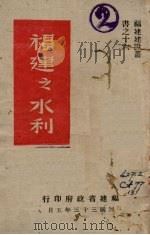 福建建設叢
書之十六
福建之水利
福建省政府印行
民國三十三年五月